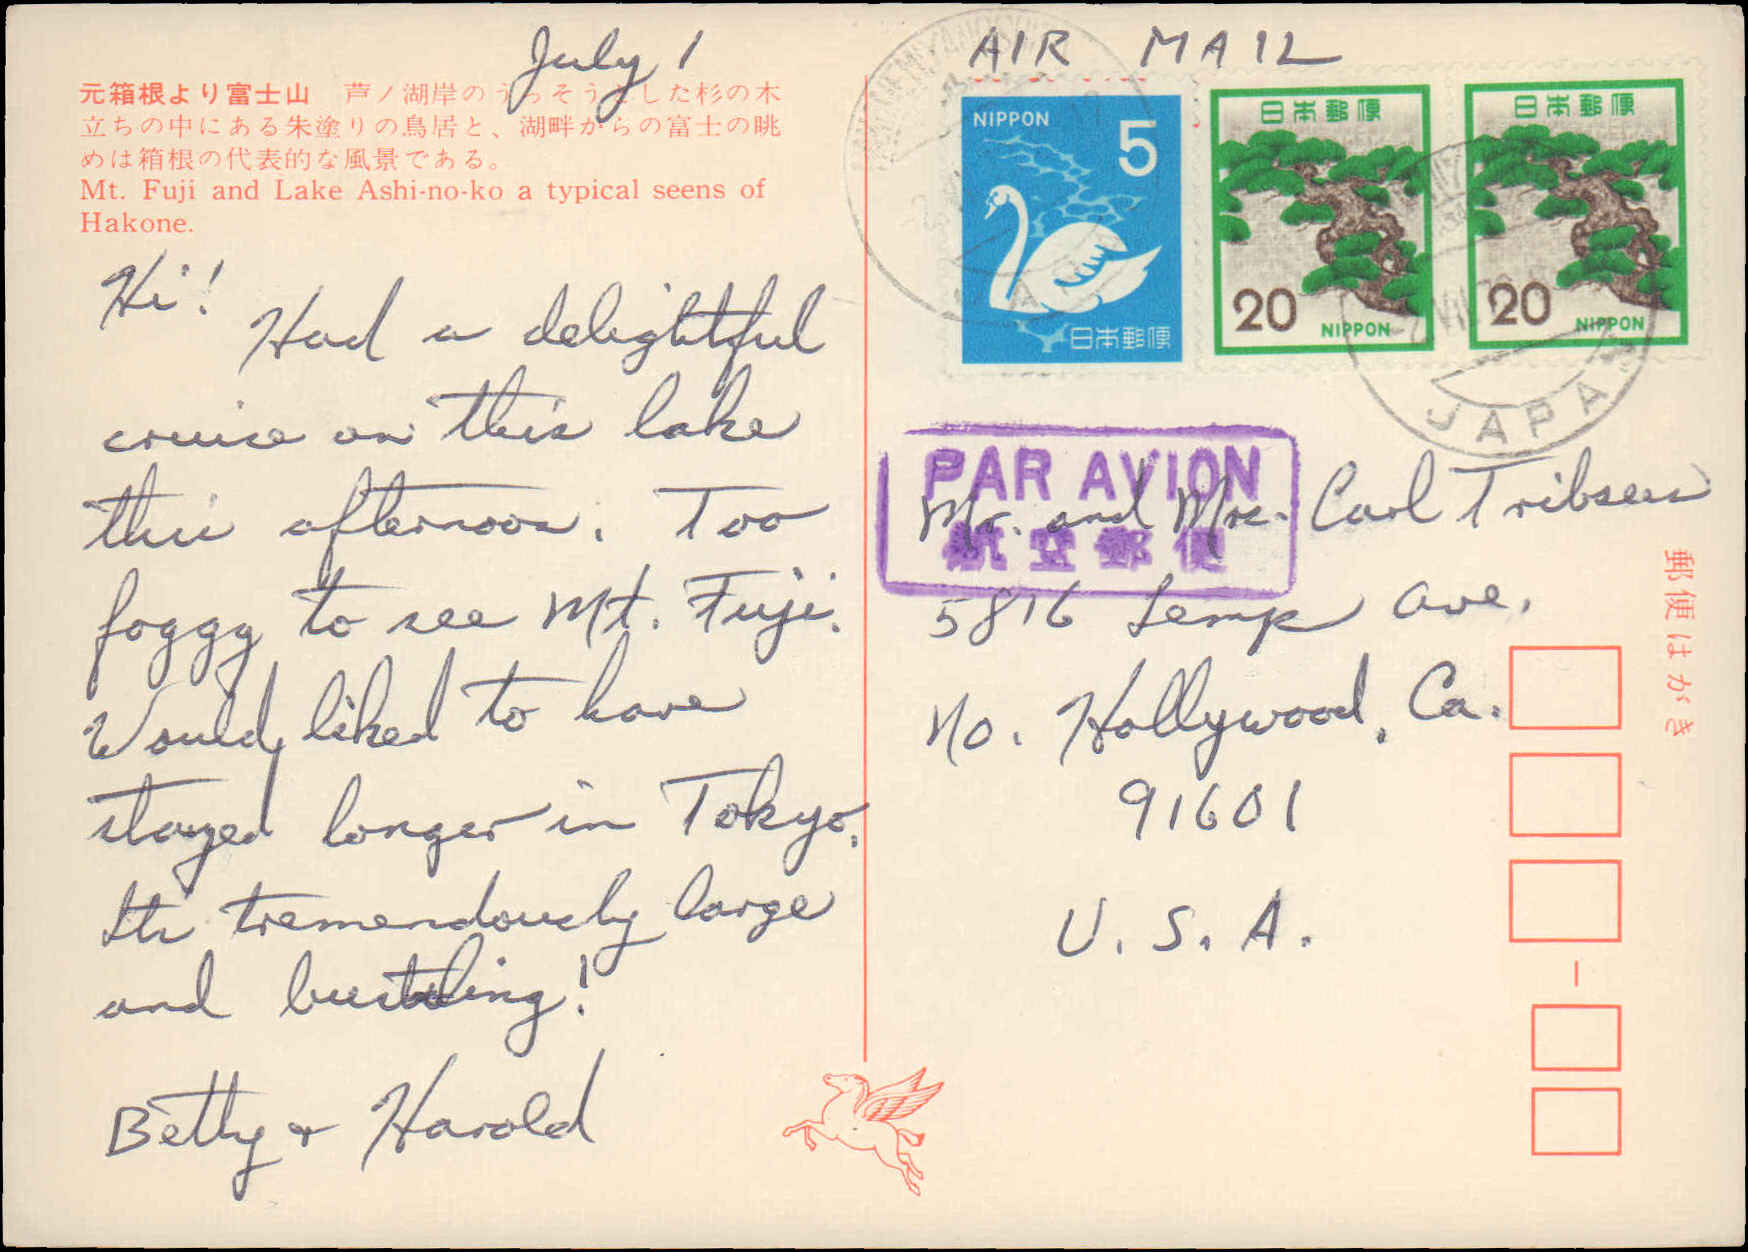 July 1
元箱根より富士山　芦ノ湖岸のうっそうとした杉の木
立ちの中にある朱塗りの鳥居と、湖畔からの富士の眺
めは箱根の代表的な風景である。
Mt. Fuji and Lake Ashi-no-ko a typical seens of
Hakone.
Hi!
Had a delightful
cruise on this lake
this afternoon. Too
foggy to see Mt. Fuji.
Would liked to have
stayed longer in Tokyo.
It's tremendously large
and bustling!
Betty + Harold
AIR MAIL
NIPPON
5
日本郵便
日本郵便
20
NIPPON
日本郵便
20
NIPPON
JAPAN
PAR AVION
航空郵便
Mr. and Mrs. Carl Tribsees
5816 Lemp Ave.
No. Hollywood, Ca.
91601
U. S. A.
郵便はがき